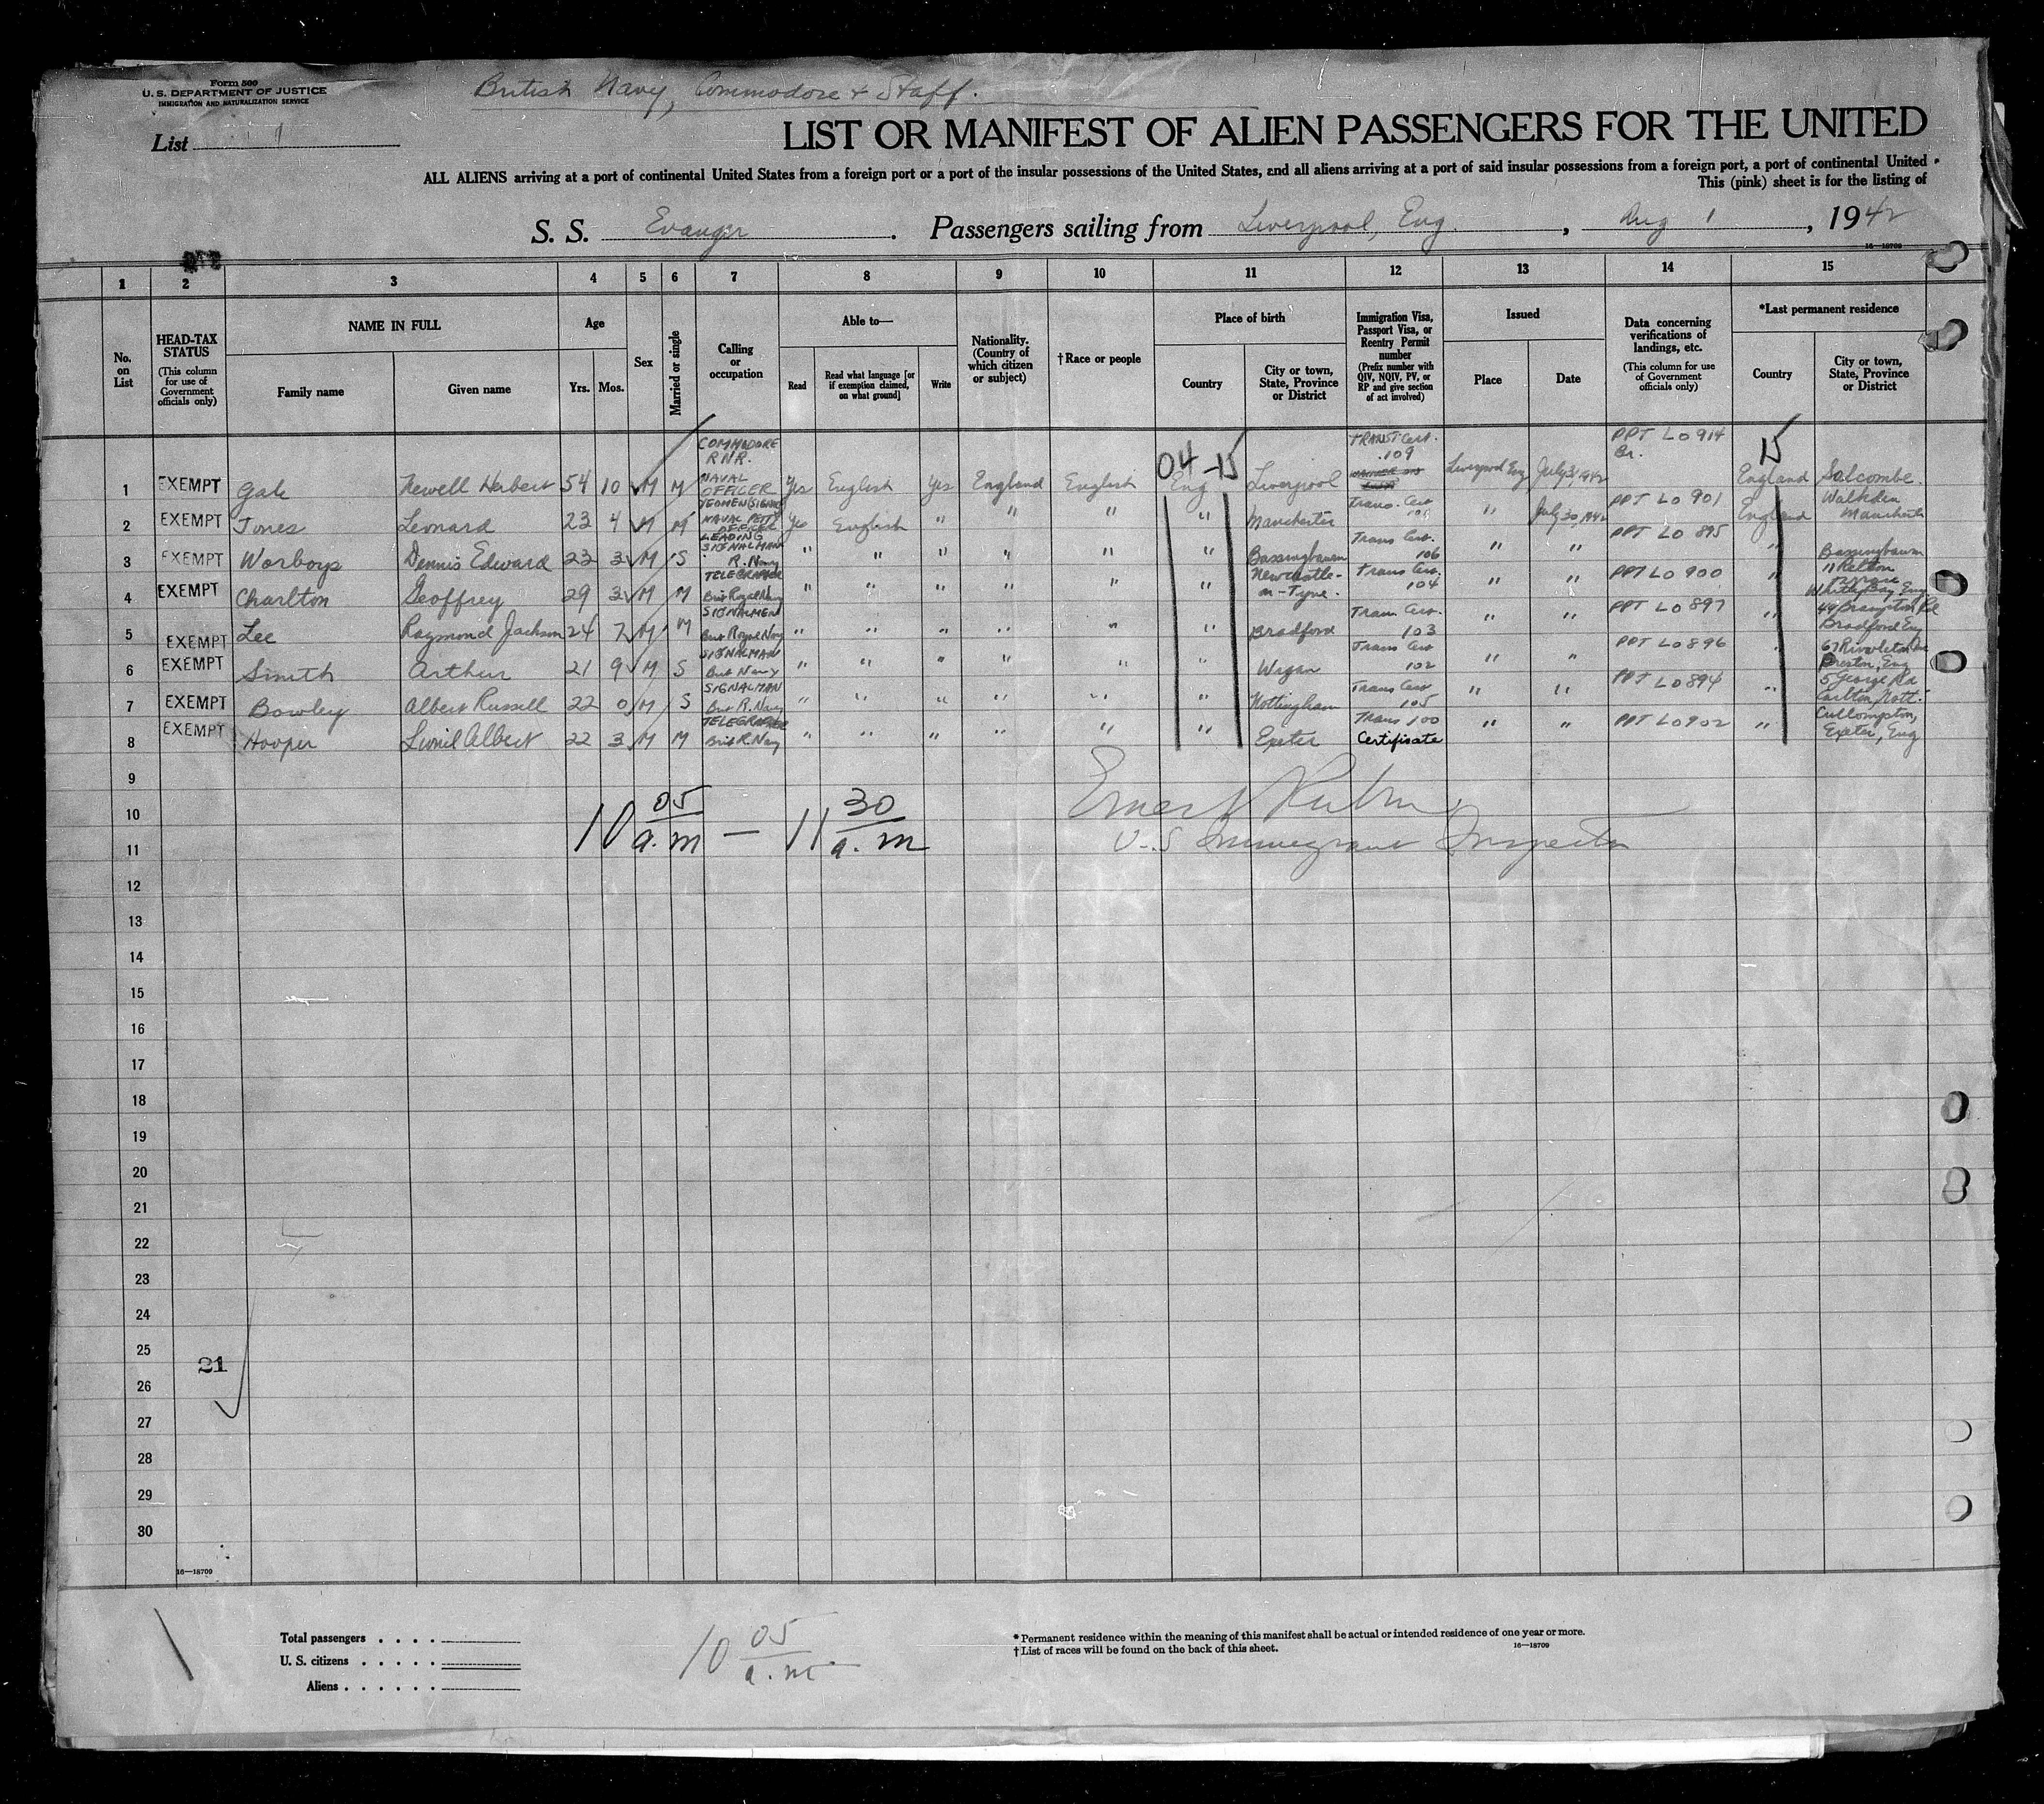 Form 500
U. S. DEPARTMENT OF JUSTICE
IMMIGRATION AND NATURALIZATION SERVICE
British Navy, Commodore & Staff.
List 1
LIST OR MANIFEST OF ALIEN PASSENGERS FOR THE UNITED
ALL ALIENS arriving at a port of continental United States from a foreign port or a port of the insular possessions of the United States, and all aliens arriving at a port of said insular possessions from a foreign port, a port of continental United
This (pink) sheet is for the listing of
S. S. Evanger . Passengers sailing from Liverpool, Eng. , Aug 1 , 1942
16—18709
1 2 3 4 5 6 7 8 9 10 11 12 13 14 15
No. on List
HEAD-TAX STATUS (This column for use of Government officials only)
NAME IN FULL Family name Given name
Age Yrs. Mos.
Sex
Married or single
Calling or occupation
Able to— Read Read what language [or if exemption claimed, on what ground] Write
Nationality. (Country of which citizen or subject)
†Race or people
Place of birth Country City or town, State, Province or District
Immigration Visa, Passport Visa, or Reentry Permit number (Prefix number with QIV, NQIV, PV, or RP and give section of act involved)
Issued Place Date
Data concerning verifications of landings, etc. (This column for use of Government officials only)
*Last permanent residence Country City or town, State, Province or District
04-15 15
1 EXEMPT Gale Newell Herbert 54 10 M M COMMODORE RNR. NAVAL OFFICER Yes English Yes England English Eng Liverpool TRANST Cert. 109 Liverpool Eng July 31 1942 PPT LO 914 Br. England Salcombe.
2 EXEMPT Jones Leonard 23 4 M M NAVAL PETTY OFFICER Yes English " " " " Manchester Trans. Cert " July 30, 1942 PPT LO 901 England Walkden Manchester
3 EXEMPT Worboys Dennis Edward 22 3 M S LEADING SIGNALMAN R. Navy " " " " " " Bassingbourn Trans Cert. 106 " " PPT LO 895 " Bassingbourn
4 EXEMPT Charlton Geoffrey 29 3 M M TELEGRAPHER Brit Royal Navy " " " " " " Newcastle-on-Tyne. Trans Cert. 104 " " PPT LO 900 " 11 Relton Whitley Bay Eng
5 EXEMPT Lee Raymond Jackson 24 7 M M SIGNALMEN Brit Royal Navy " " " " " " Bradford Trans Cert. 103 " " PPT LO 897 " 44 Brampton Pl Bradford Eng
6 EXEMPT Smith Arthur 21 9 M S SIGNALMAN Brit Navy " " " " " " Wigan Trans Cert 102 " " PPT LO 896 " Preston, Eng
7 EXEMPT Bowley Albert Russell 22 0 M S SIGNALMAN Brit R. Navy " " " " " " Nottingham Trans Cert 105 " " PPT LO 894 " 5 George Rd Carlton, Nott.
8 EXEMPT Hooper Lionel Albert 22 3 M M TELEGRAPHER Brit R. Navy " " " " " " Exeter Trans 100 Certificate " " PPT LO 902 " Cullompton, Exeter, Eng
9
10
10 05 a.m — 11 30 a.m
Ernest
U.S Immigrant Inspector
11
12
13
14
15
16
17
18
19
20
21
22
23
24
25
21
26
27
28
29
30
16—18709
Total passengers
U. S. citizens
Aliens
10 05 a.m.
*Permanent residence within the meaning of this manifest shall be actual or intended residence of one year or more.
†List of races will be found on the back of this sheet.
16—18709